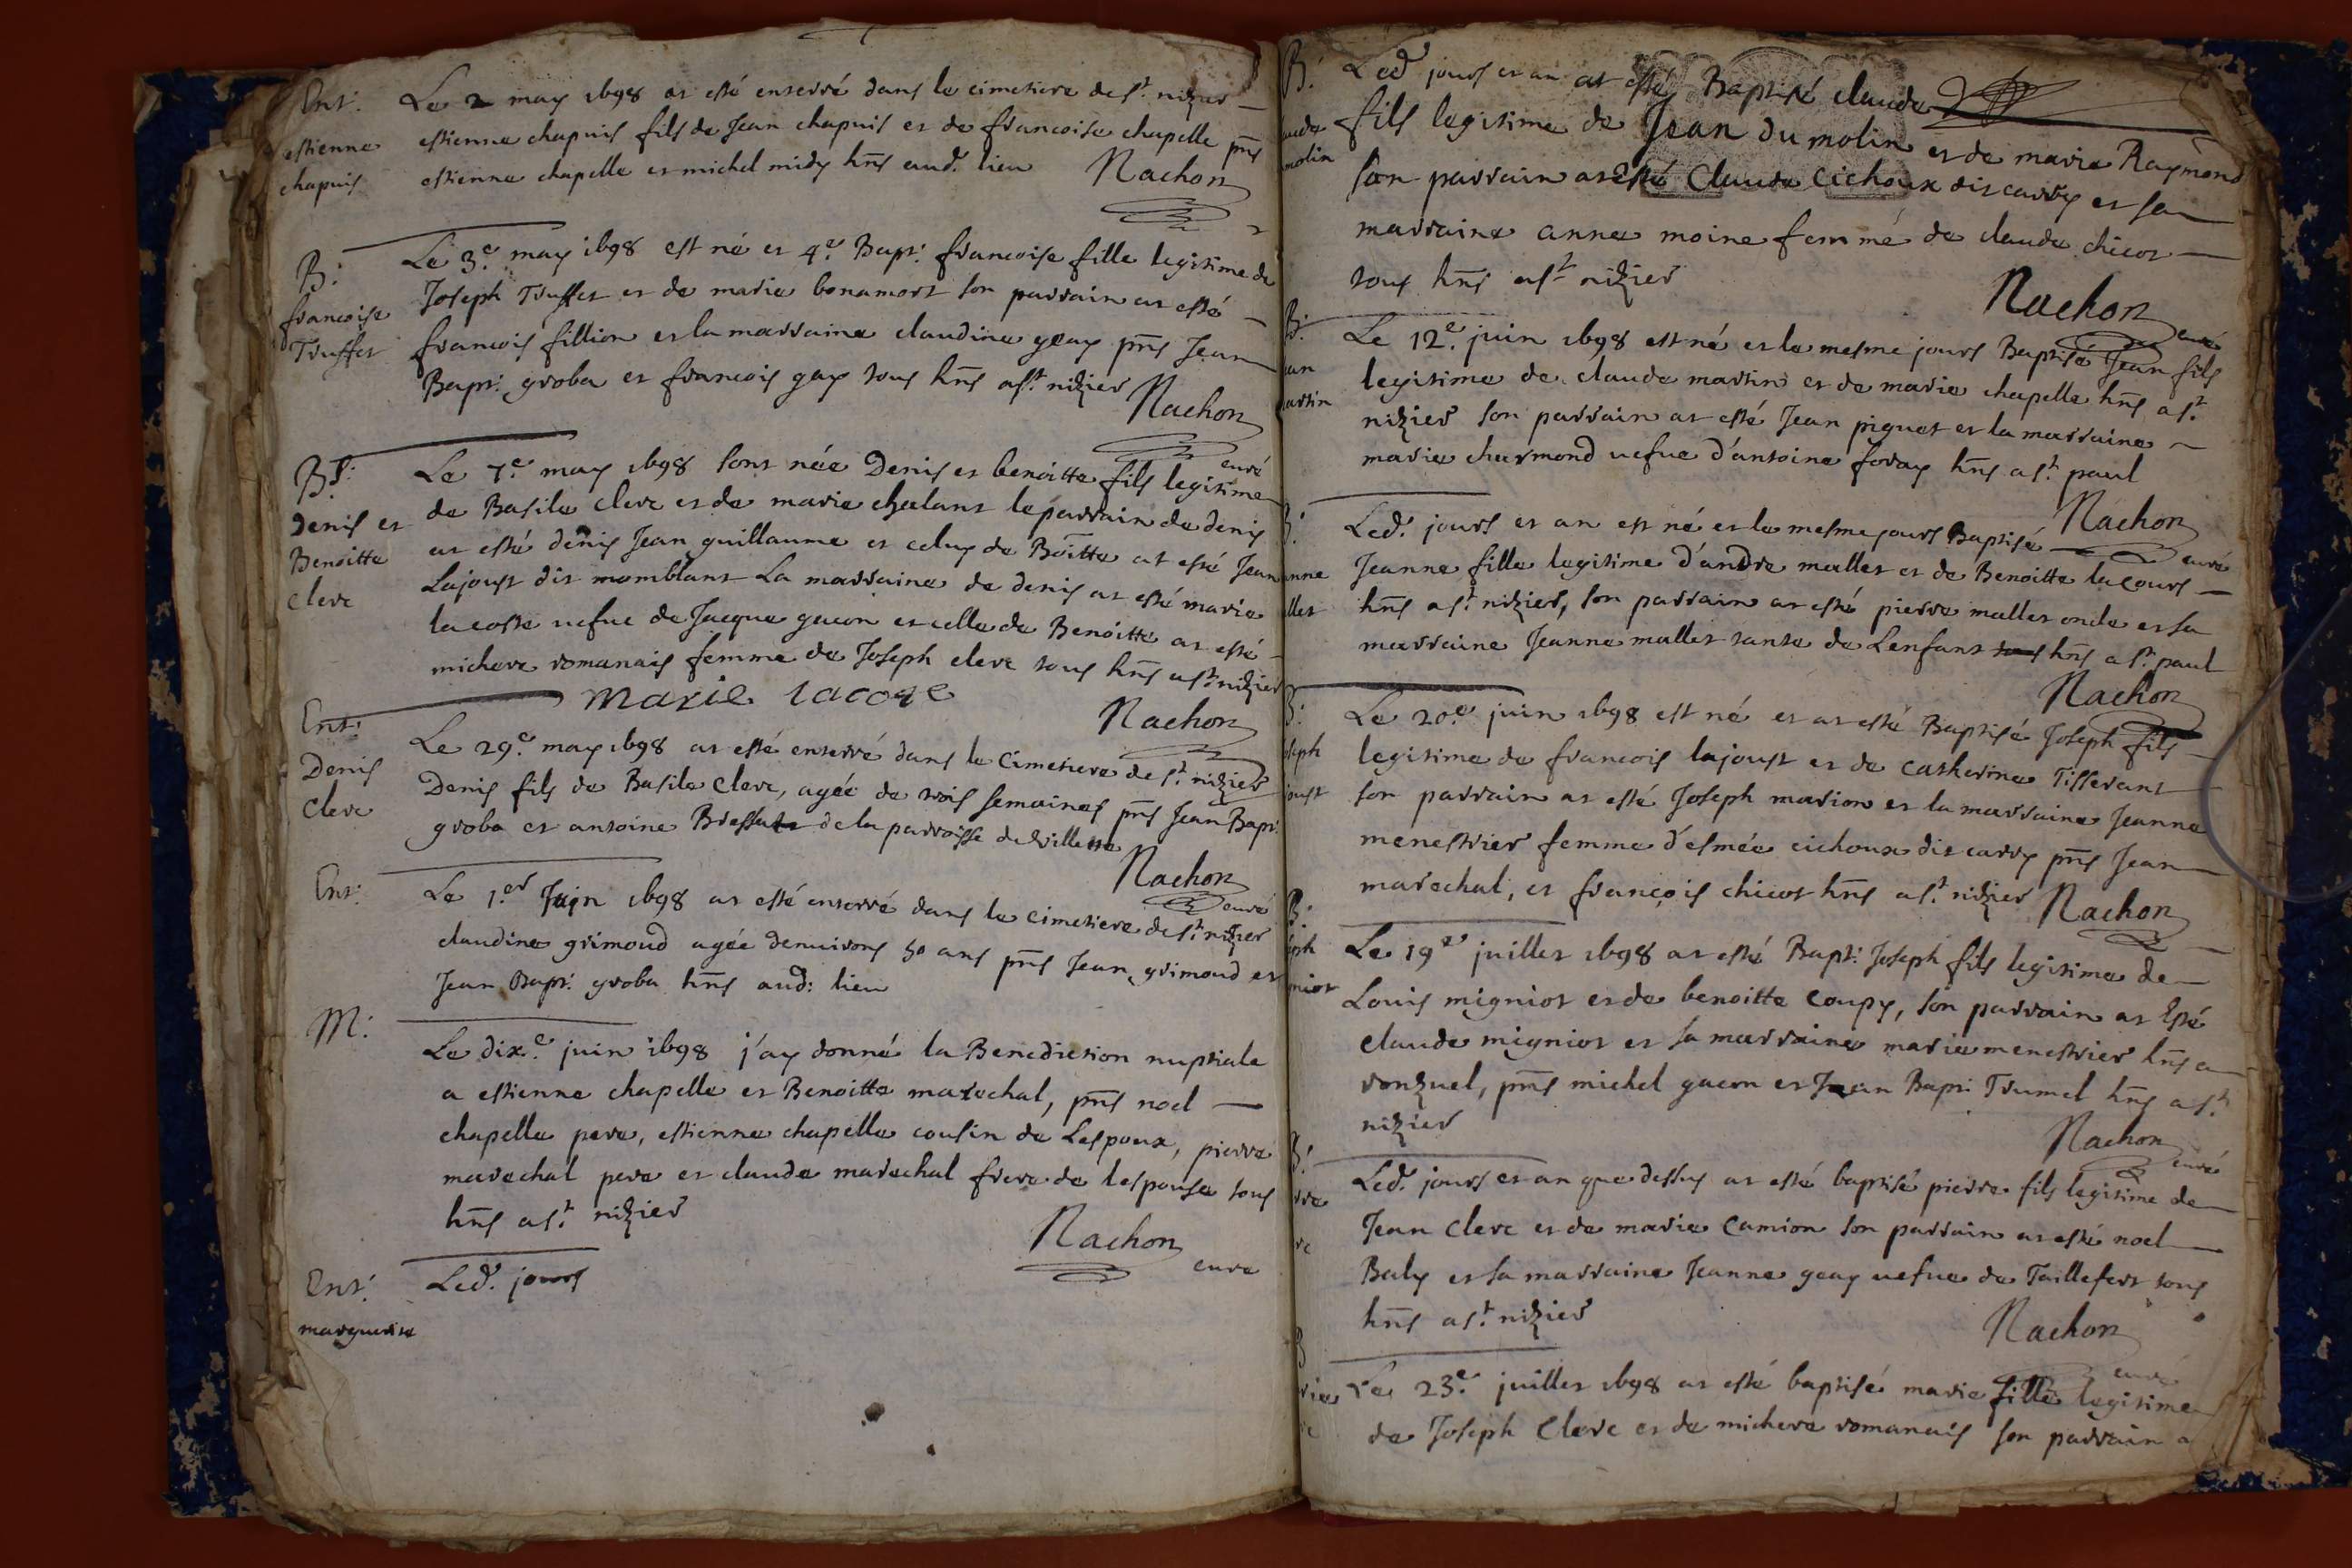 Ent:
estienne
chapuis
Le 2 may 1698 at esté enterré dans le cimetiere de st nizier
estienne chapuis fils de Jean chapuis et de francoise chapelle pñs
estienne chapelle et michel midy hñs aud. lieu
Nachon
B:
francoise
Truffet
Le 3e. may 1698 est né et 4e. Bapt: francoise fille legitime de
Joseph Truffet et de marie bonamort son parrain at esté
francois fillion et la marraine claudine geay pñs Jean
Bapt: groba et francois gay tous hñs a st. nizier
Nachon
curé
Bs:
Denis et
Benoitte
Clerc
Le 7e may 1698 sont née Denis et benoitte fils legitime
de Basile Clerc et de marie chalant le parrain de denis
at esté denis Jean guillaume et celuy de Boitte at esté Jean
Lajoust dit momblant La marraine de denis at esté marie
lacoste vefue de Jacque gacon et celle de Benoitte at esté
michere romanais femme de Joseph clerc tous hñs a st nizier
marie lacote
Nachon
Ent:
Denis
Clerc
Le 29e. may 1698 at esté enterré dans le Cimetiere de st. nizier
Denis fils de Basile Clerc, agée de trois semaines pñs Jean Bapt:
groba et antoine de la parroisse de villette
Nachon
curé
Ent:
Le 1.er Juin 1698 at esté enterré dans le cimetiere de st. nizier
claudine grimoud agée denuirons 50 ans pñs Jean grimoud et
Jean Bapt: groba hñs aud: lieu
M:
Le dixe. juin 1698 j'ay donné la Benediction nuptiale
a estienne chapelle et Benoitte marechal, pñs noel
chapelle pere, estienne chapelle cousin de Lespoux, pierre
marechal pere et claude marechal frere de lespouse tous
hñs a st. nizier
Nachon
cure
Ent:
marguerite
Led. jours
B:
aude
molin
Led jours et an at esté Baptisé claude
fils legitime de Jean du molin et de marie Raymond
son parrain at Esté Claude Cichoux dit carry et sa
marraine anne moine femme de claude chicot
tous hñs a st nizier
Nachon
curé
B:
an
artin
Le 12e. juin 1698 est né et le mesme jours Baptisé Jean fils
legitime de claude martin et de marie chapelle hñs a st.
nizier son parrain at esté Jean piguet et la marraine
marie charmond vefue d'antoine foray hñs a st. paul
Nachon
curé
B:
anne
llet
Led. jours et an est né et le mesme jours Baptisé
Jeanne fille legitime d'andre mallet et de Benoitte lacours
hñs a st. nizier, son parrain at esté pierre mallet oncle et sa
marraine Jeanne mallet tante de Lenfant hñs a st. paul
Nachon
B:
oseph
joust
Le 20.e juin 1698 est né et at esté Baptisé Joseph fils
legitime de francois lajoust et de catherine Tisserant
son parrain at esté Joseph marion et la marraine Jeanne
menestrier femme d'esmée cichoux dit carry pñs Jean
marechal, et françois chicot hñs a st. nizier
Nachon
B:
eph
niot
Le 19e juillet 1698 at esté Bapt: Joseph fils legitime de
Louis migniot et de benoitte Coupy, son parrain at Esté
claude migniot et sa marraine marie menestrier hñs a
ronzuel, pñs michel gacon et Jean Bapt: Trumel hñs a st.
nizier
Nachon
curé
B:
rre
rc
Led. jours et an que dessus at esté baptisé pierre fils legitime de
Jean Clerc et de marie Camion son parrain at esté noel
Baly et sa marraine Jeanne geay vefue de Taillefert tous
hñs a st. nizier
Nachon
curé
B
rie
rc
Le 23e. juillet 1698 at esté baptisé marie fille legitime
de Joseph Clerc et de michere romanais son parrain a